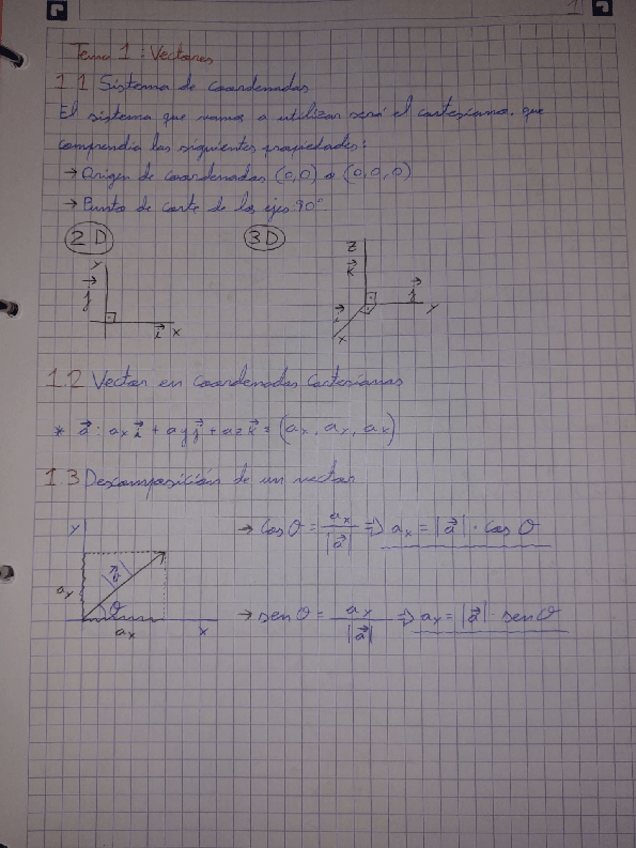 1
Tema 1: Vectores
1.1 Sistema de coordenadas
El sistema que vamos a utilizar será el cartesiano, que
comprendia las siguientes propiedades:
→ Origen de coordenadas (0,0) o (0,0,0)
→ Punto de corte de los ejes 90°
2D 3D
y z
k
j j
i y
i x x
1.2 Vector en coordenadas cartesianas
* a⃗: ax i⃗ + ay j⃗ + az k⃗ = (ax, ax, ax)
1.3 Descomposición de un vector
y
→ cos θ = ax / |a⃗| ⇒ ax = |a⃗| · cos θ
a⃗
ay
θ
→ sen θ = ax / |a⃗| ⇒ ax = |a⃗| · sen θ
ax x